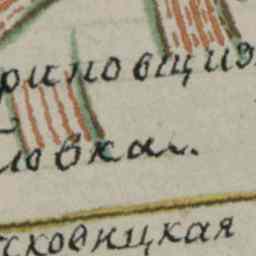 риновщиз
ловка.
сковицкая